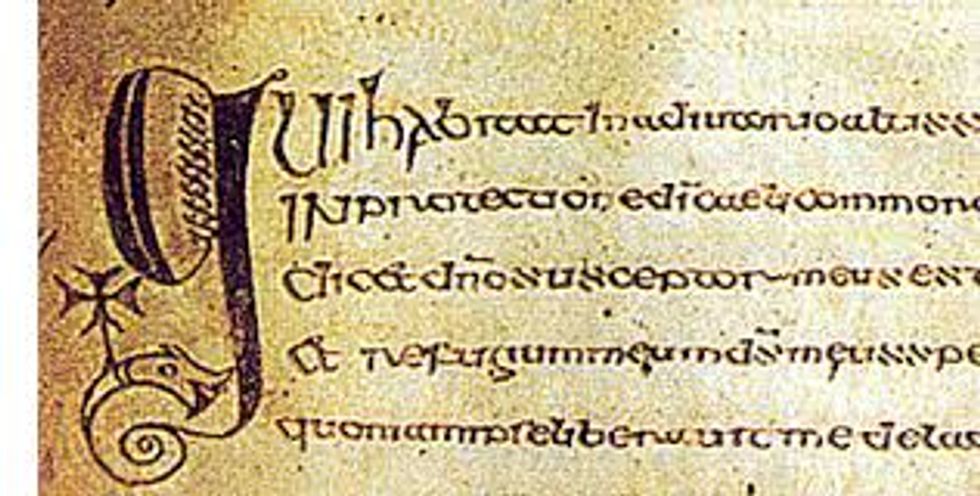 QUI habitat In adiutorio altiss
IN protectione dī caeli commor
dicet dn̄o susceptor meus es
Et refugium meum ds̄ meus spe
quoniam ipse liberauit me de la